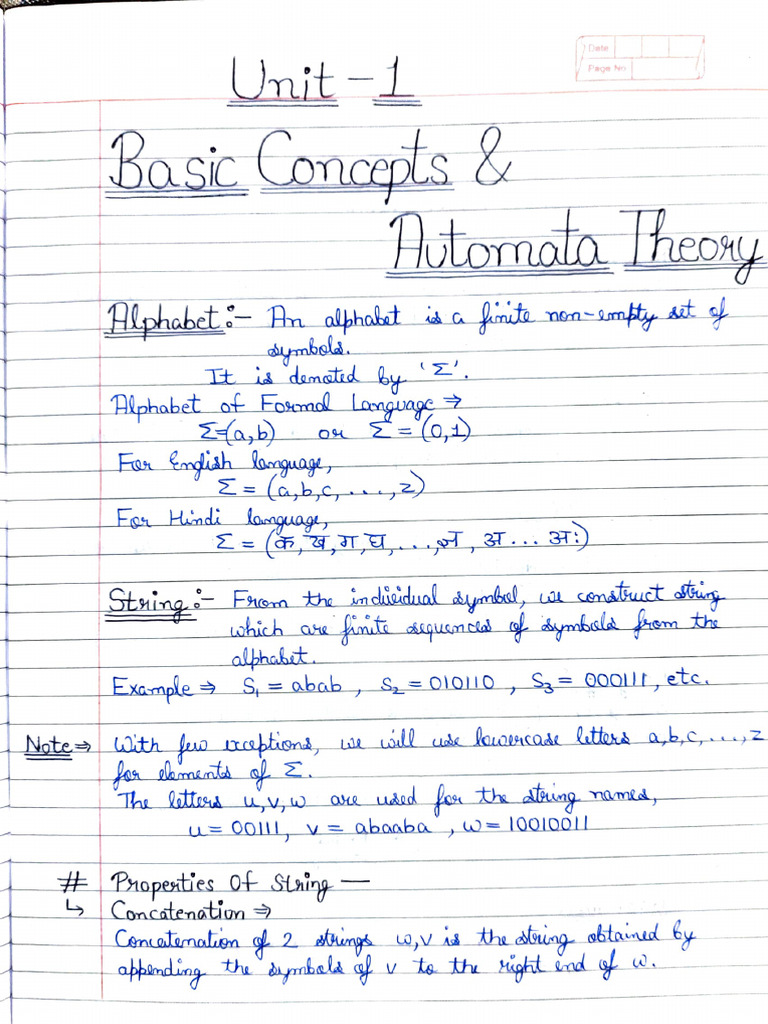 Date
Page No
Unit - 1
Basic Concepts &
Automata Theory
Alphabet :- An alphabet is a finite non-empty set of
symbols.
It is denoted by 'Σ'.
Alphabet of Formal Language ⇒
Σ=(a,b) or Σ = (0,1)
For English language,
Σ = (a,b,c, ...., z)
For Hindi language,
Σ = (क, ख, ग, घ, ...., ज्ञ, अ ... अः)
String :- From the individual symbol, we construct string
which are finite sequences of symbols from the
alphabet.
Example ⇒ S₁ = abab , S₂ = 010110 , S₃ = 000111, etc.
Note ⇒ With few exceptions, we will use lowercase letters a,b,c, ...., z
for elements of Σ.
The letters u,v,w are used for the string names,
u = 00111, v = abaaba , w = 10010011
# Properties Of String —
↳ Concatenation ⇒
Concatenation of 2 strings w,v is the string obtained by
appending the symbols of v to the right end of w.